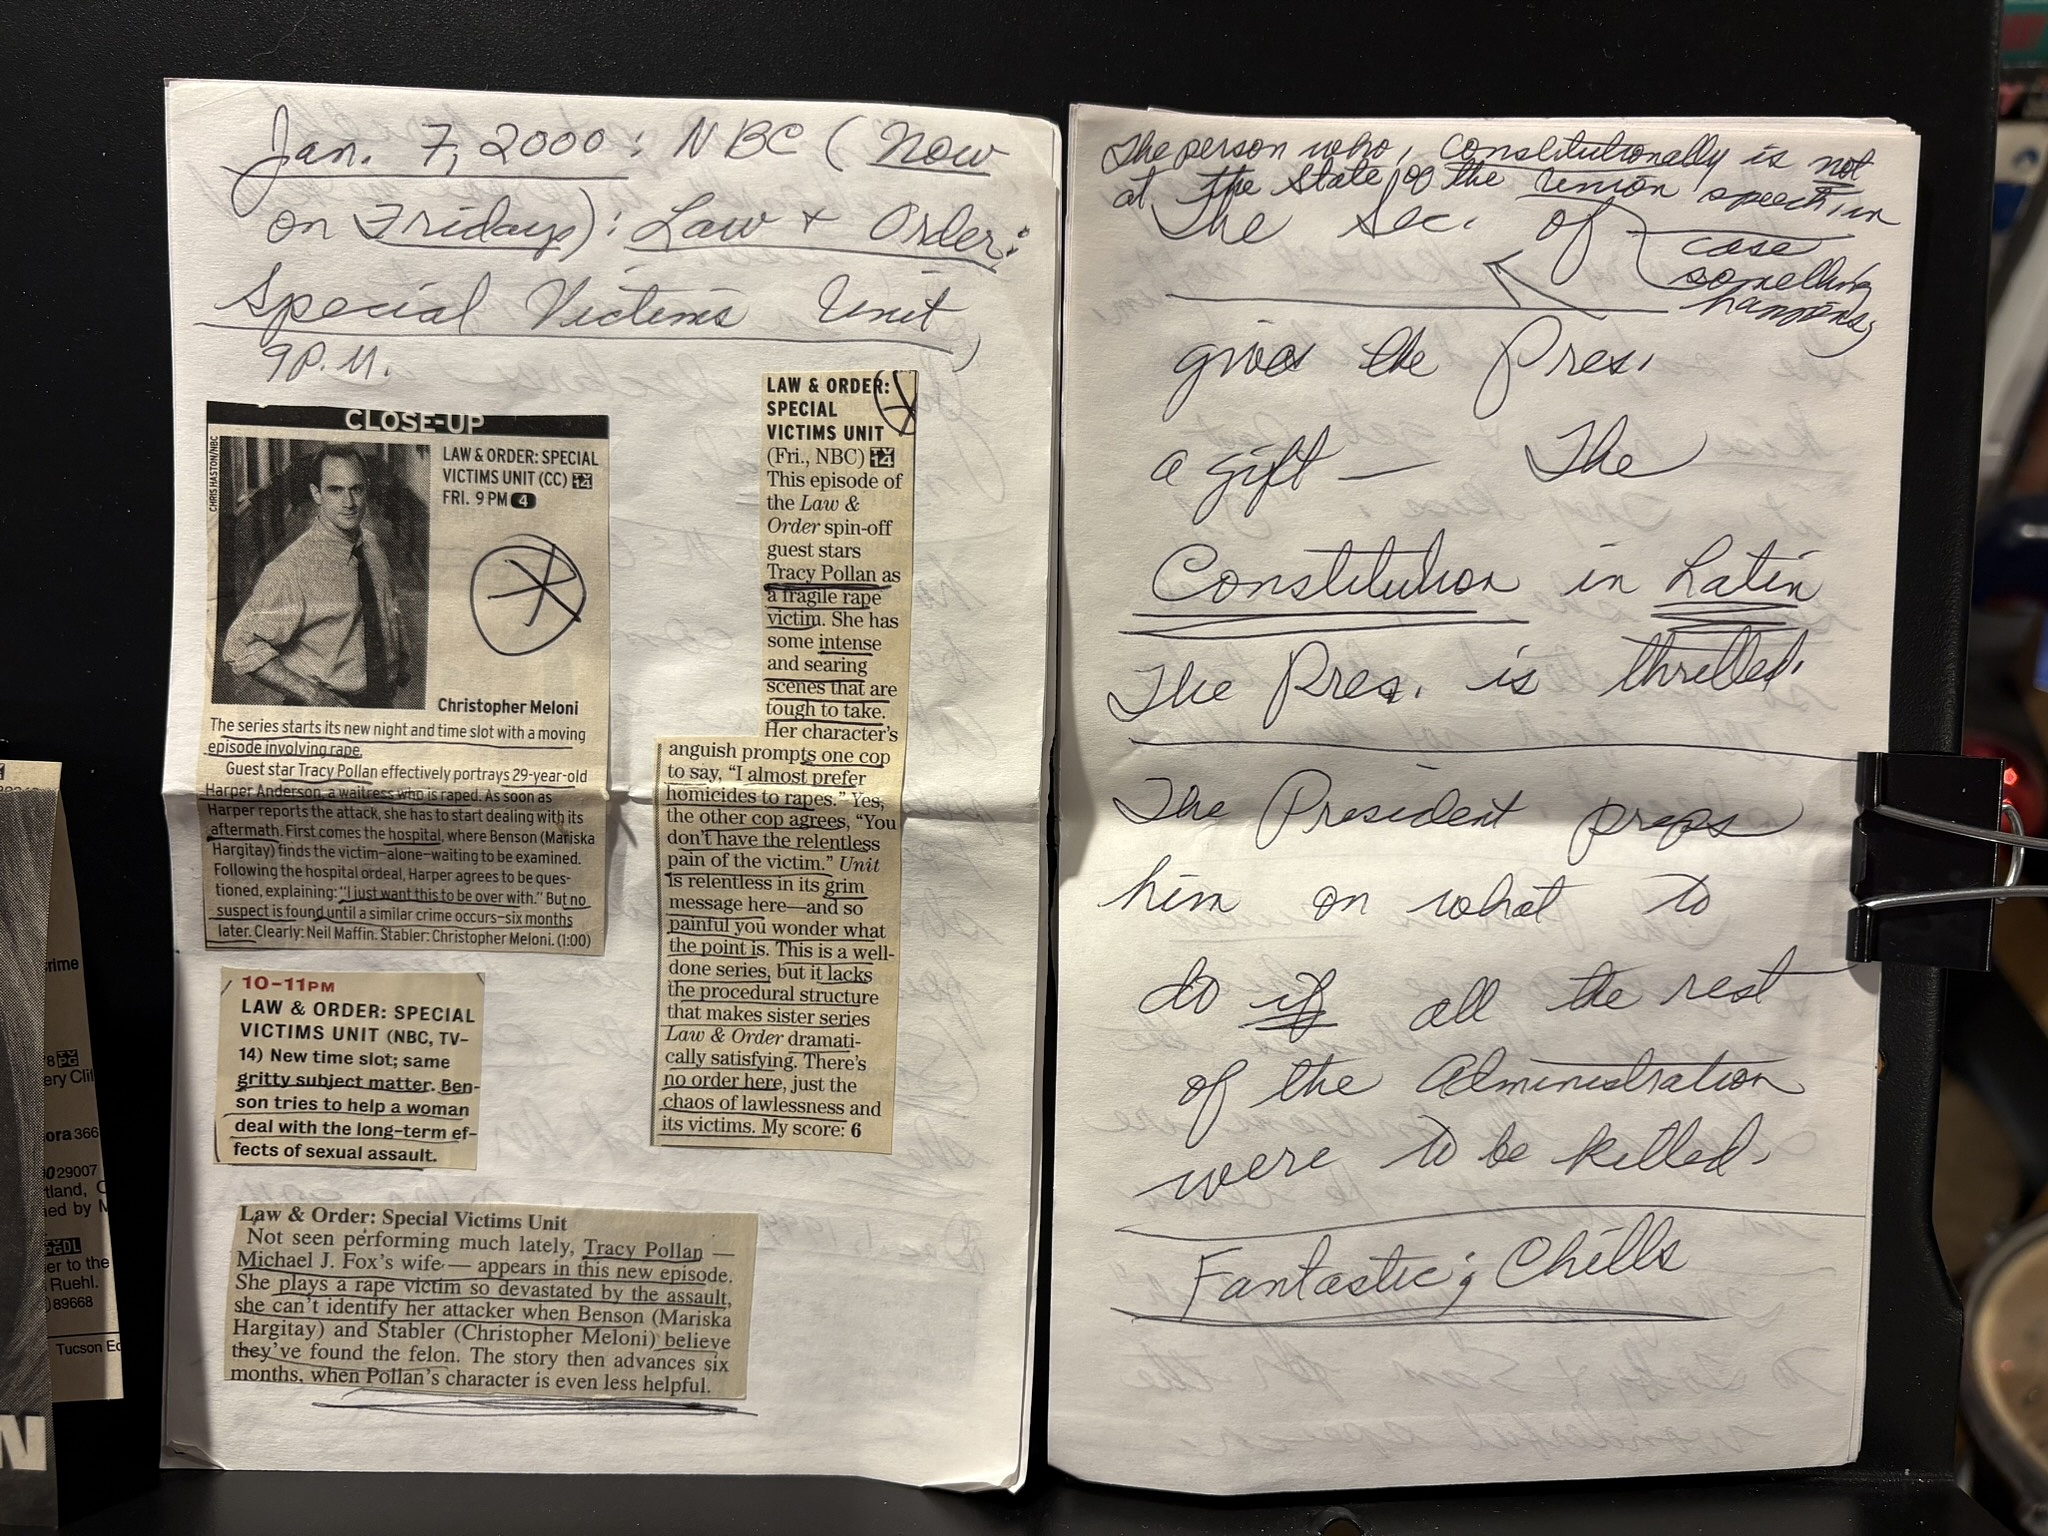 Jan. 7, 2000: NBC (Now
on Fridays): Law + Order:
Special Victims Unit,
9P.M.
CLOSE-UP
CHRIS HASTON/NBC
LAW & ORDER: SPECIAL
VICTIMS UNIT (CC) TV 14
FRI. 9 PM 4
Christopher Meloni
The series starts its new night and time slot with a moving
episode involving rape.
Guest star Tracy Pollan effectively portrays 29-year-old
Harper Anderson, a waitress who is raped. As soon as
Harper reports the attack, she has to start dealing with its
aftermath. First comes the hospital, where Benson (Mariska
Hargitay) finds the victim—alone—waiting to be examined.
Following the hospital ordeal, Harper agrees to be ques-
tioned, explaining: "I just want this to be over with." But no
suspect is found until a similar crime occurs—six months
later. Clearly: Neil Maffin. Stabler: Christopher Meloni. (1:00)
10–11PM
LAW & ORDER: SPECIAL
VICTIMS UNIT (NBC, TV-
14) New time slot; same
gritty subject matter. Ben-
son tries to help a woman
deal with the long-term ef-
fects of sexual assault.
LAW & ORDER:
SPECIAL
VICTIMS UNIT
(Fri., NBC) TV 14
This episode of
the Law &
Order spin-off
guest stars
Tracy Pollan as
a fragile rape
victim. She has
some intense
and searing
scenes that are
tough to take.
Her character's
anguish prompts one cop
to say, "I almost prefer
homicides to rapes." Yes,
the other cop agrees, "You
don't have the relentless
pain of the victim." Unit
is relentless in its grim
message here—and so
painful you wonder what
the point is. This is a well-
done series, but it lacks
the procedural structure
that makes sister series
Law & Order dramati-
cally satisfying. There's
no order here, just the
chaos of lawlessness and
its victims. My score: 6
Law & Order: Special Victims Unit
Not seen performing much lately, Tracy Pollan —
Michael J. Fox's wife — appears in this new episode.
She plays a rape victim so devastated by the assault,
she can't identify her attacker when Benson (Mariska
Hargitay) and Stabler (Christopher Meloni) believe
they've found the felon. The story then advances six
months, when Pollan's character is even less helpful.
The person who, constitutionally is not
at the State of the Union speech, in
case
something
happens,
The Sec. of
gives the Pres.
a gift — The
Constitution in Latin
The Pres. is thrilled.
The President preps
him on what to
do if all the rest
of the Administration
were to be killed.
Fantastic; Chills
rime
8 PG
ery Cli
ora 366
29007
tland,
ed by M
er to the
Ruehl.
89668
Tucson Ed
N